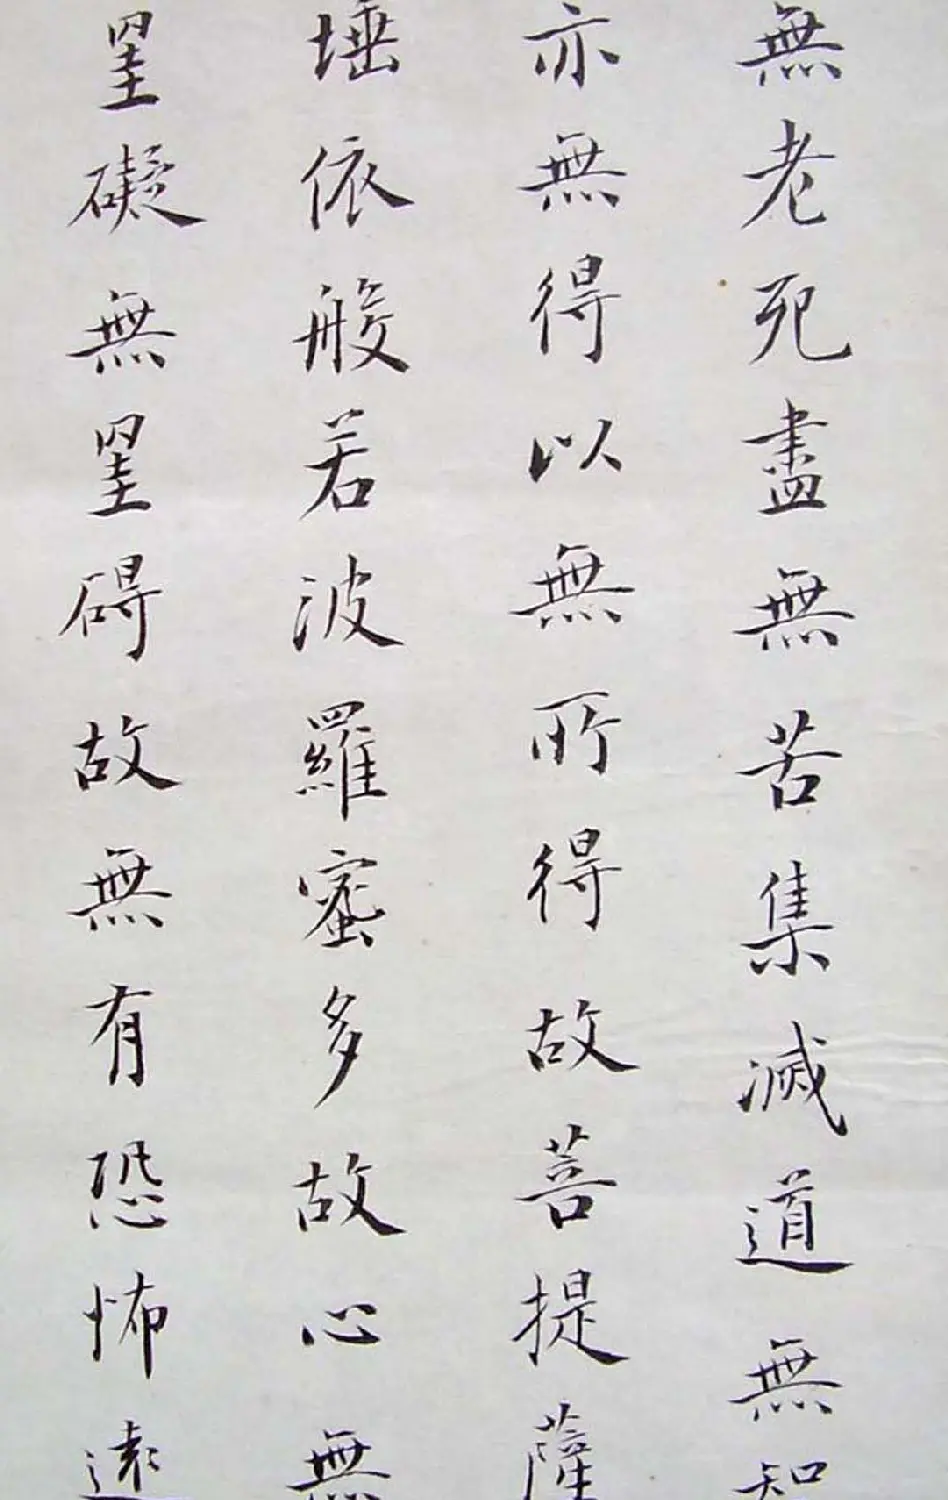 無老死盡無苦集滅道無知
亦無得以無所得故菩提薩
埵依般若波羅蜜多故心無
罣礙無罣碍故無有恐怖遠